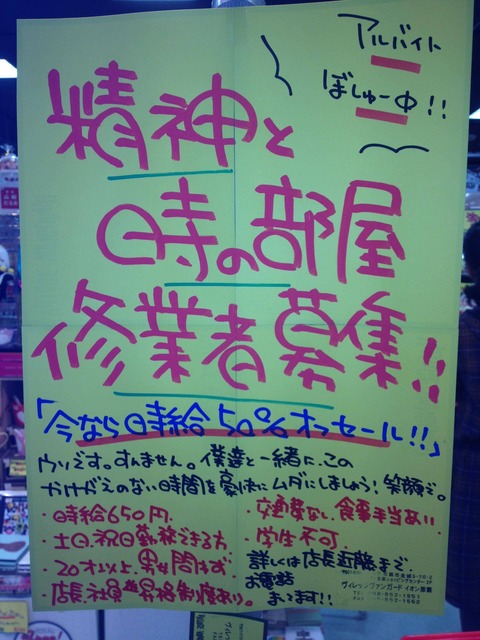 アルバイト
ぼしゅー中!!
精神と
時の部屋
修業者募集!!
「今なら時給50%オフセール!!」
ウソです。すんません。僕達と一緒に、この
かけがえのない時間を豪快にムダにしましょう!笑顔で。
・時給650円
・土日祝日勤務できる方
・20才以上、男女問わず
・店長、社員昇格制度あり。
・交通費なし、食事手当あり
・学生不可
詳しくは店長近藤まで
お電話
まってます!!
ヴィレッジヴァンガード イオン那覇